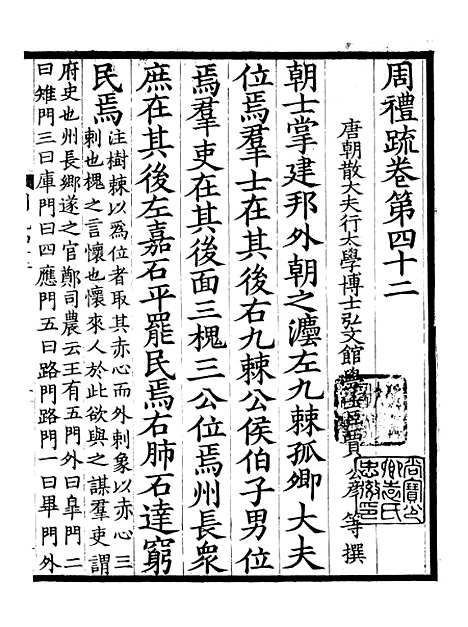 周禮疏卷第四十二
唐朝散大夫行太學博士弘文館學士臣賈公彥等撰
朝士掌建邦外朝之灋左九棘孤卿大夫
位焉羣士在其後右九棘公侯伯子男位
焉羣吏在其後面三槐三公位焉州長衆
庶在其後左嘉石平罷民焉右肺石達窮
民焉
注樹棘以爲位者取其赤心而外刺象以赤心三
刺也槐之言懷也懷來人於此欲與之謀羣吏謂
府史也州長鄉遂之官鄭司農云王有五門外曰皐門二
曰雉門三曰庫門四曰應門五曰路門路門一曰畢門外